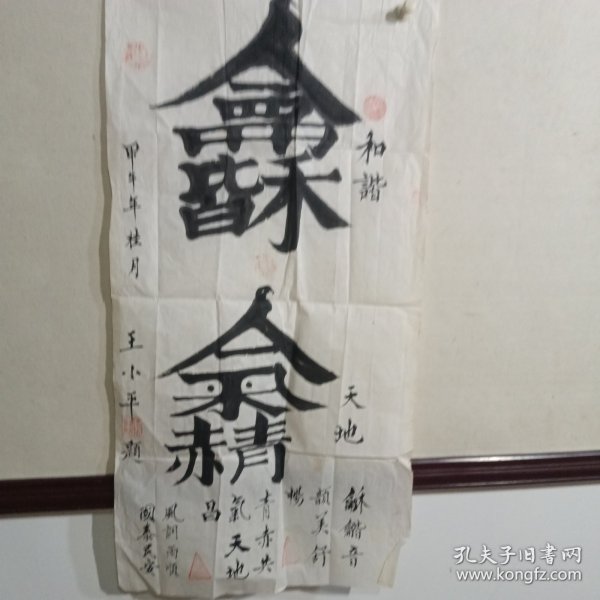 和諧
天地
龢龤音
韻美舒
暢
青赤共
氣天地
昌
風調雨順
國泰民安
甲午年桂月
王小平題
孔夫子旧书网
www.kongfz.com